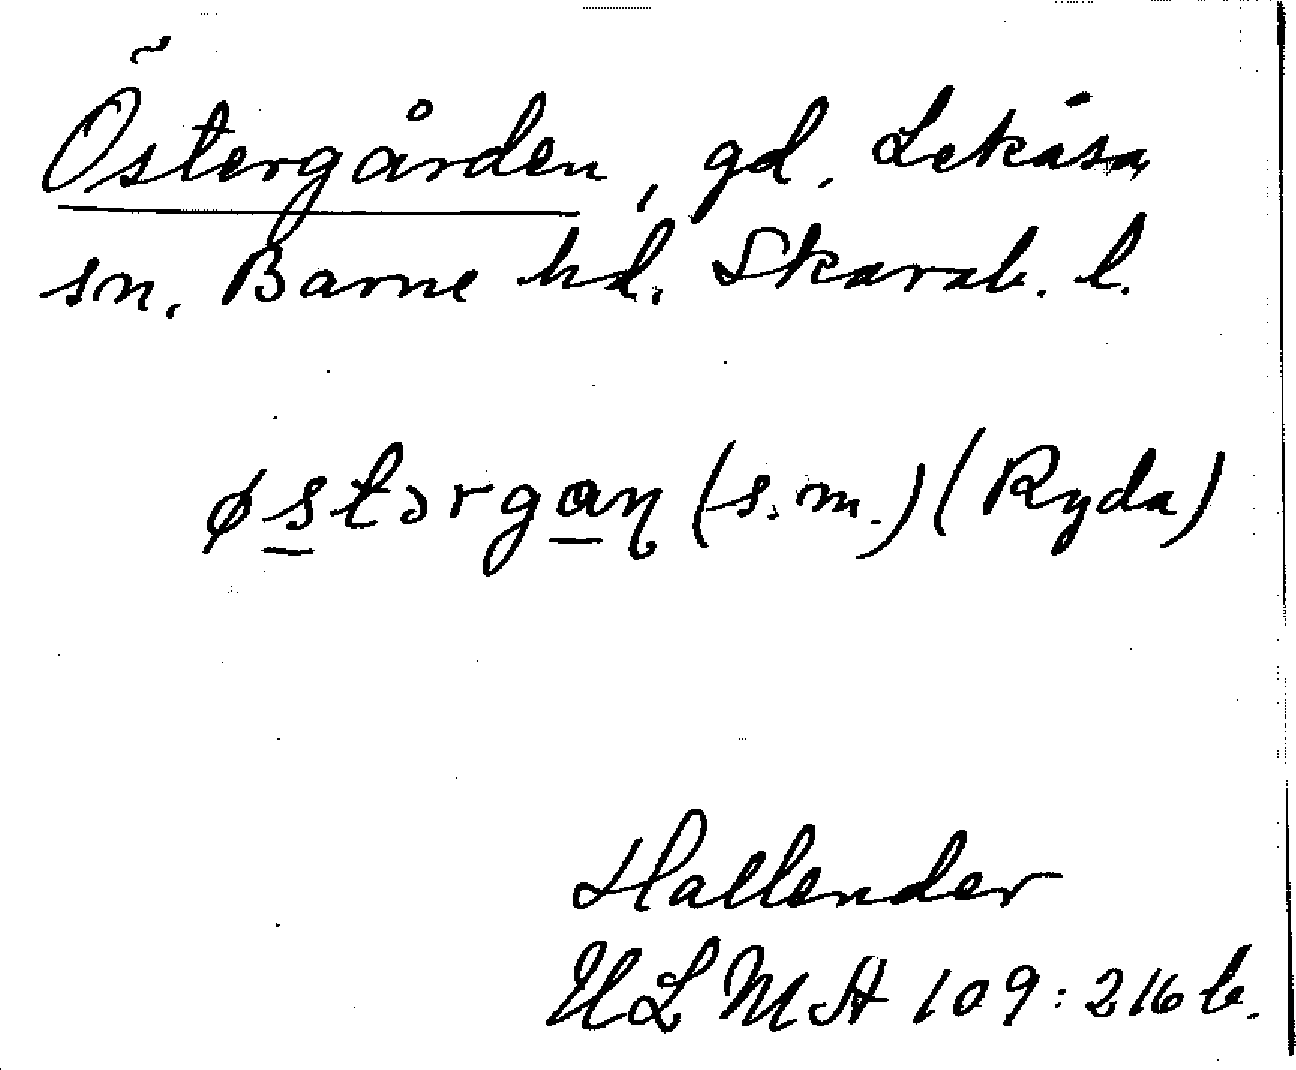 Östergården, gd. Lekåsa
sn. Barne hd. Skarab. l.
østərgaŋ (s.m.) (Ryda)
Hallender
ULMA 109:216 b.